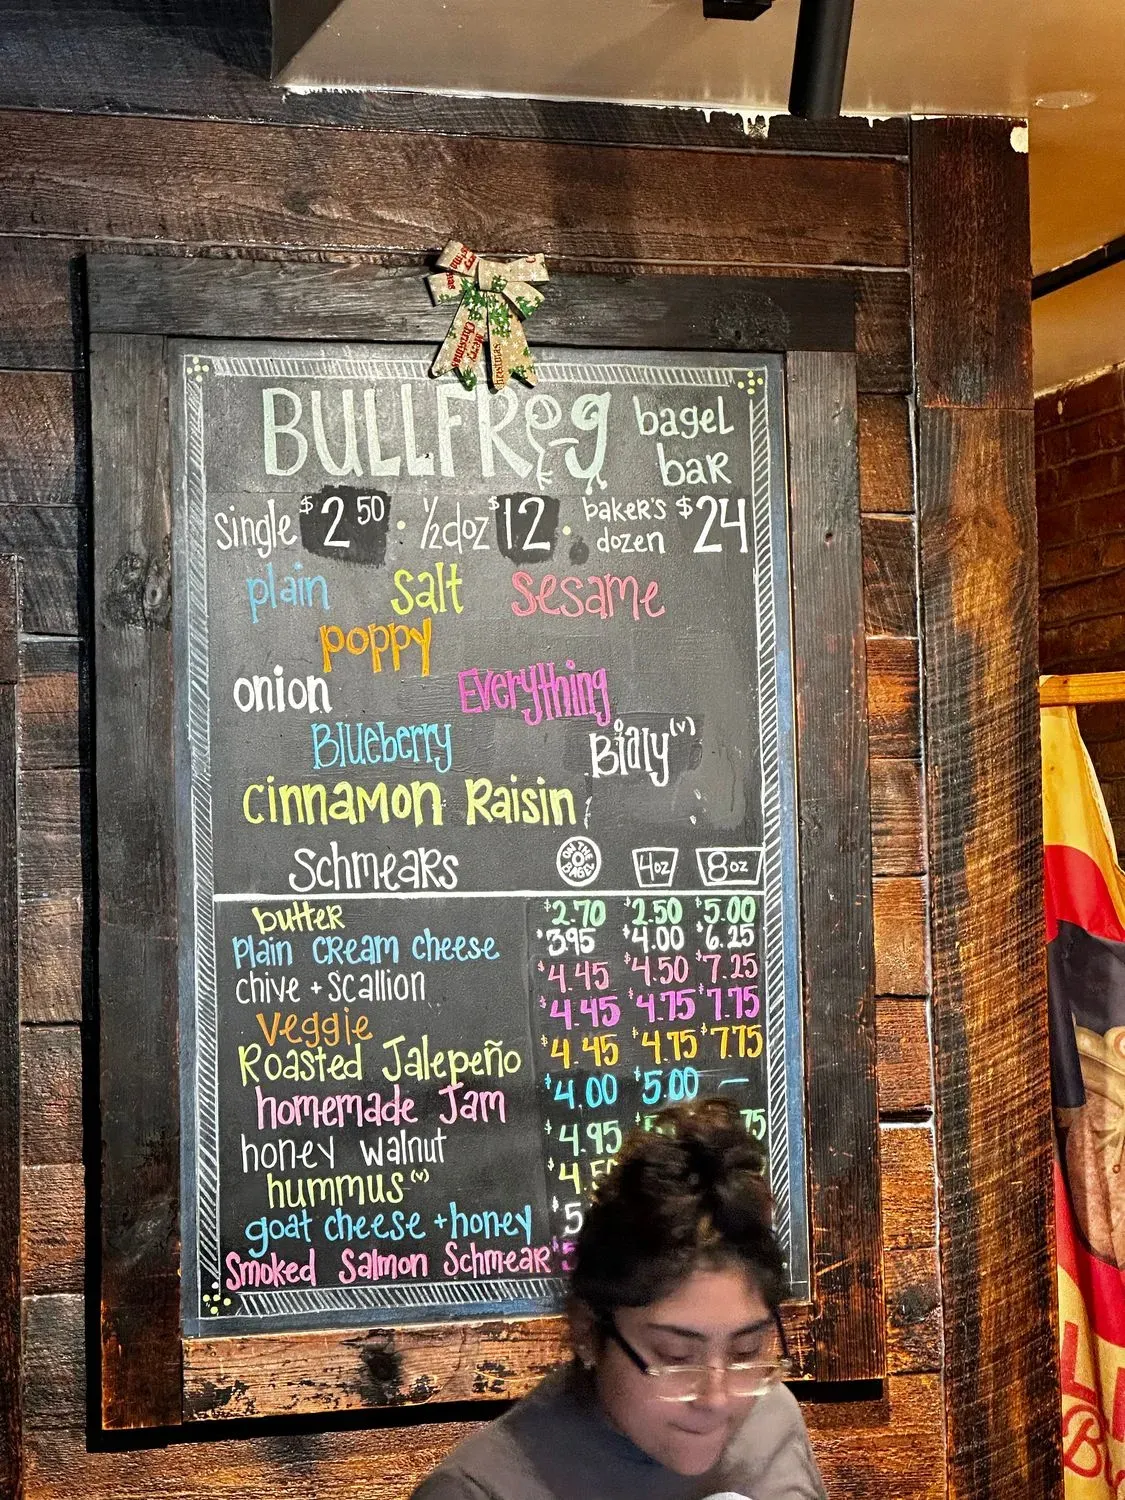 BULLFROG bagel bar
single $2.50 · ½ doz $12 · baker's dozen $24
plain salt sesame
poppy
onion Everything
Blueberry Bialy (v)
cinnamon Raisin
Schmears ON THE BAGEL 4oz 8oz
butter $2.70 $2.50 $5.00
plain cream cheese $3.95 $4.00 $6.25
chive + scallion $4.45 $4.50 $7.25
Veggie $4.45 $4.75 $7.75
Roasted Jalepeño $4.45 $4.75 $7.75
homemade Jam $4.00 $5.00 —
honey walnut $4.95
hummus (v)
goat cheese + honey
Smoked Salmon Schmear
Merry Christmas